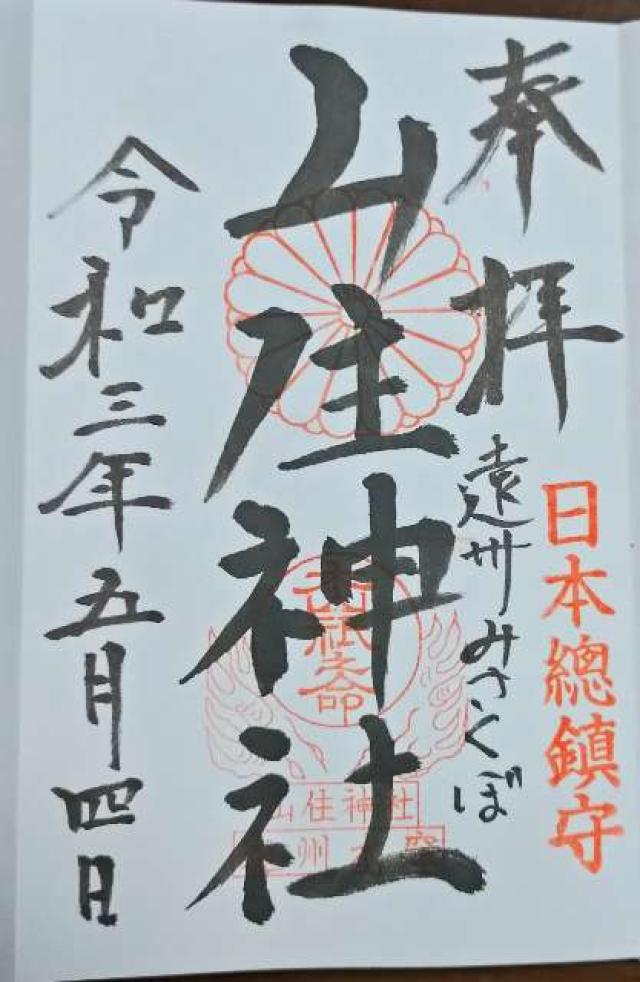 奉拝
日本總鎮守
遠州みさくぼ
山住神社
山住神社
令和三年五月四日